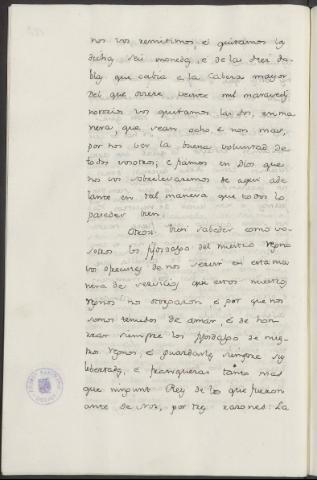 nos vos remitimos, e quitamos las
dichas seis monedas, e de las diez do-
blas que cabia a la cabeza mayor
del que oviere veinte mil maravedis
notorios vos quitamos las dos, en ma
nera, que sean ocho, e non mas,
por nos ver la buena voluntad de
todos vosotros; e fiamos en Dios que
nos vos sobrelevaremos de aqui ade
lante en tal manera que todos lo
paredes bien.
Otrosi: bien sabedes como vo-
sotros los fijosdalgo del nuestro regno
vos de nos servir en esta ma
nera de servicio, que estos nuestros
regnos nos otorgaron, e por que nos
somos tenudos de amar, e de hon
rrar siempre los fijosdalgo de nues
tros regnos, e guardarles siempre sus
libertades, e franquezas tanto mas
que ningunt Rey de los que fueron
ante de Nos, por tres razones: La